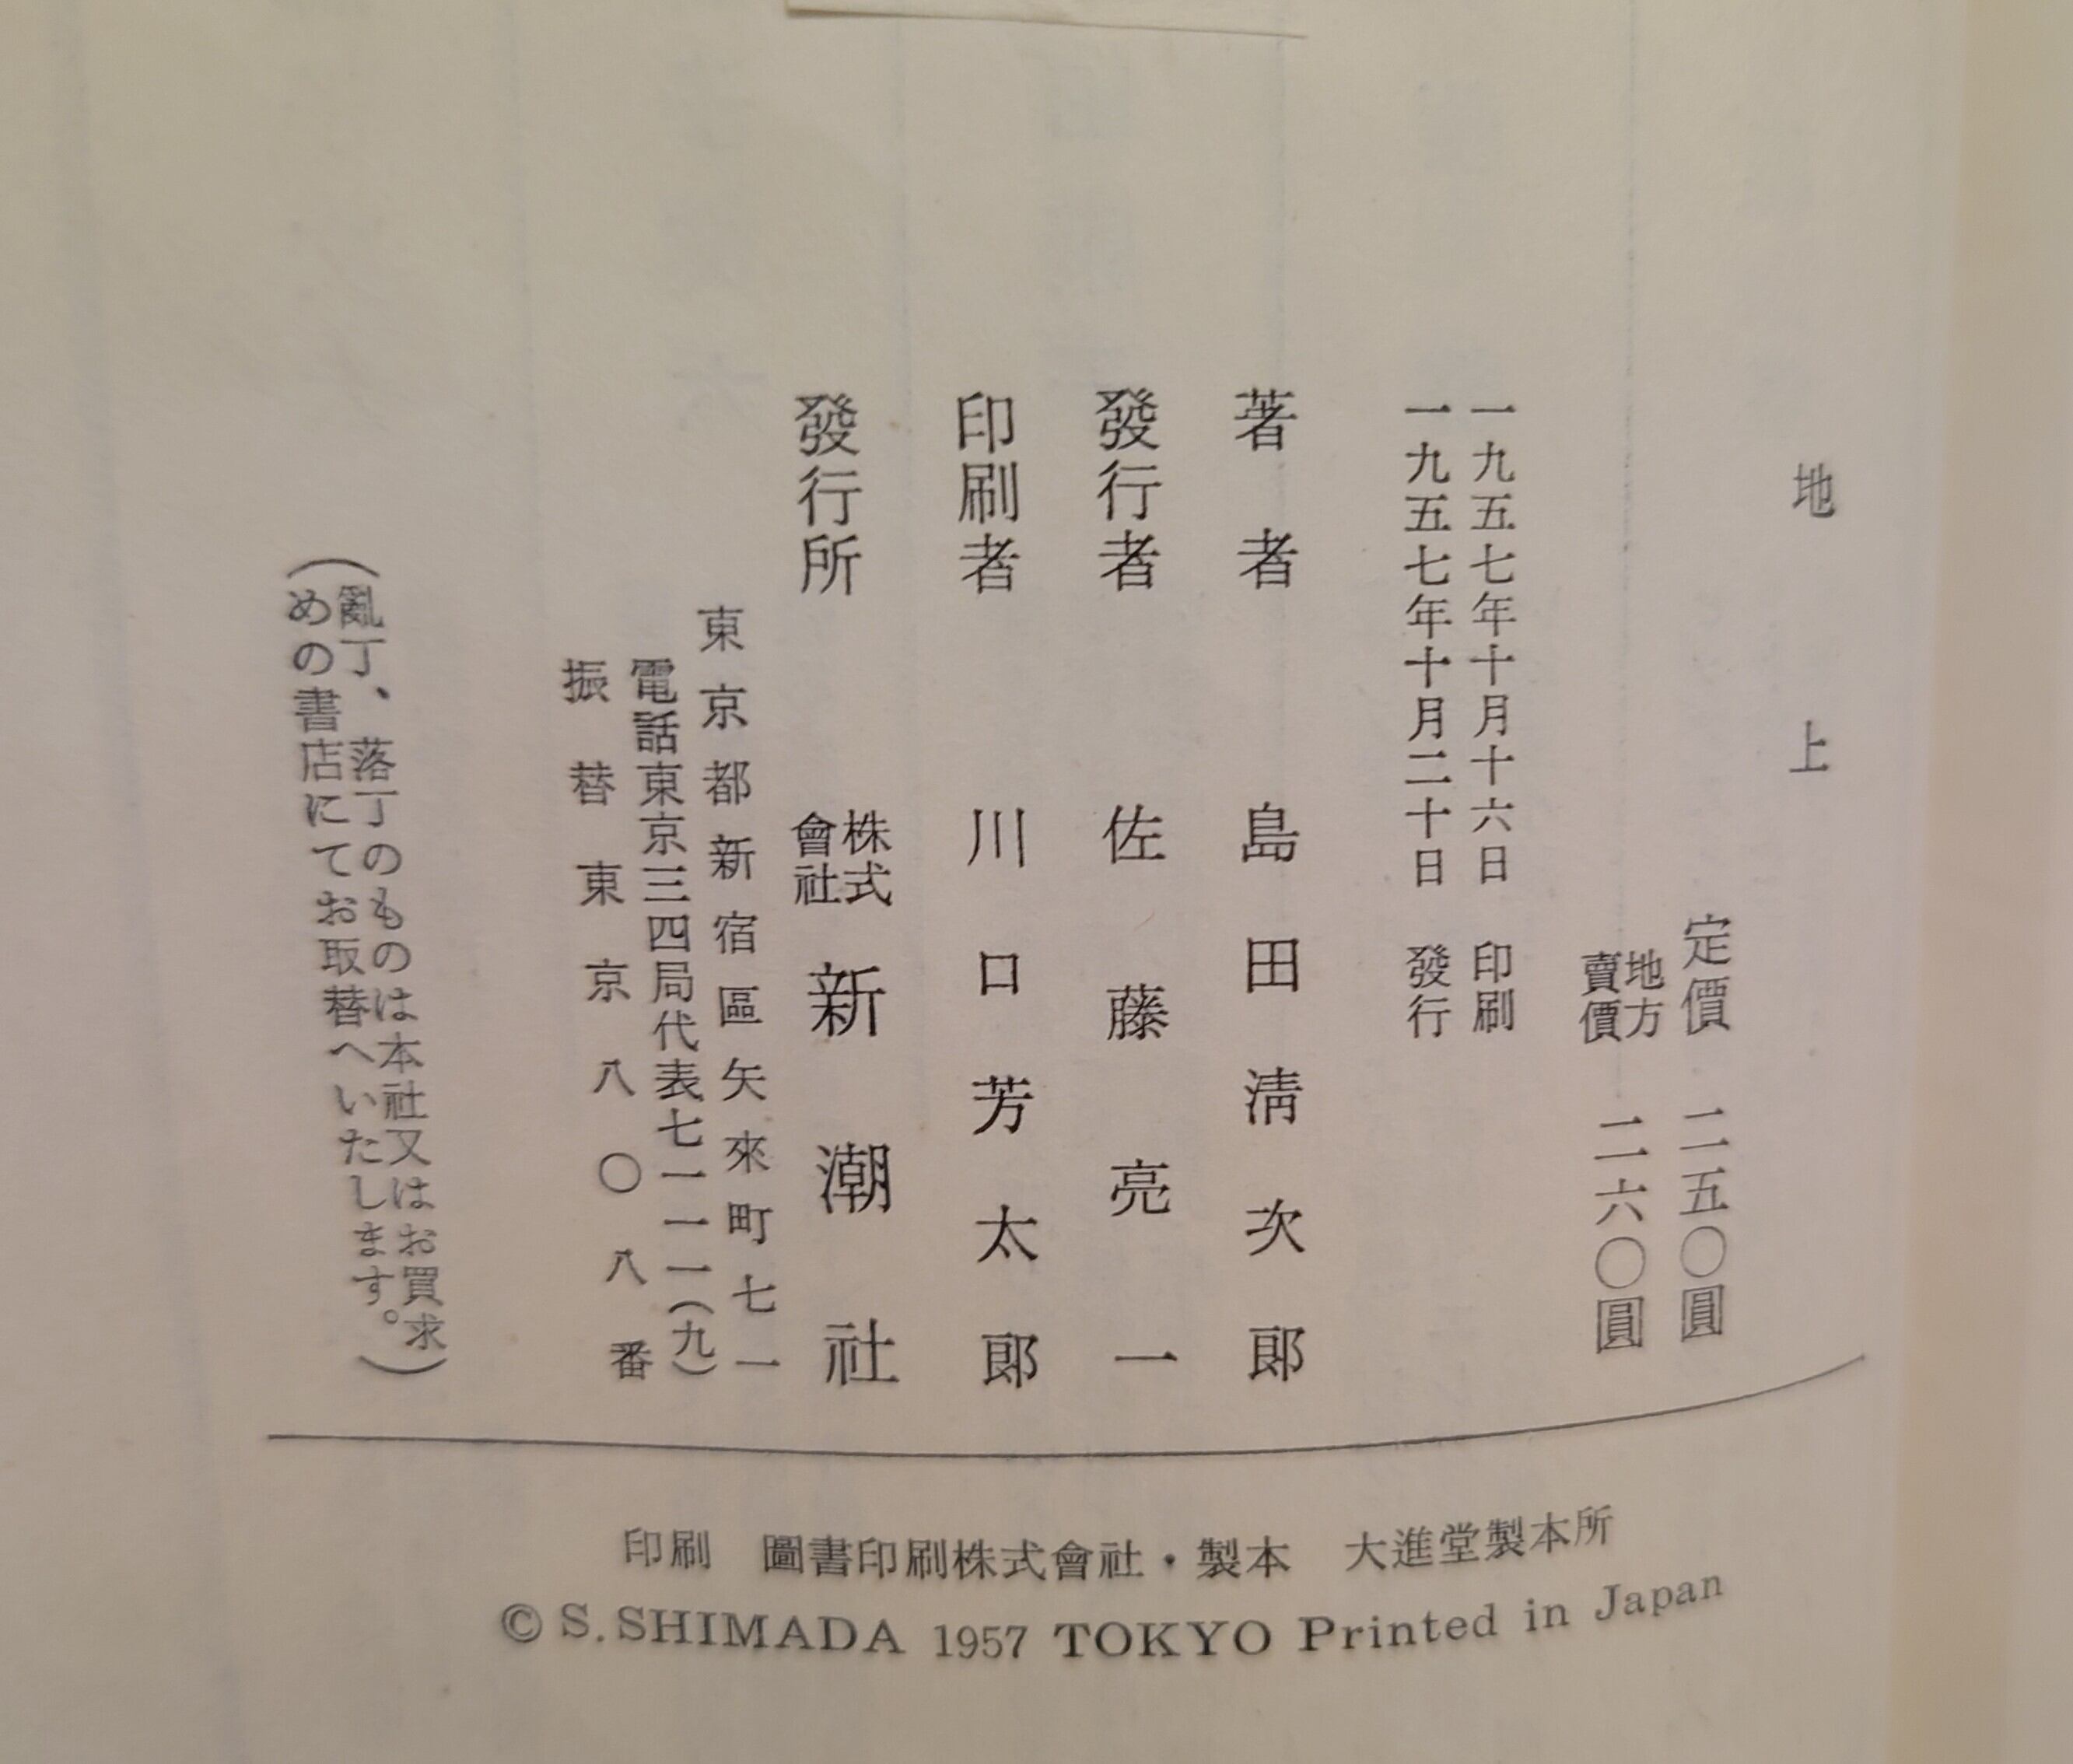 地上
定價 二五〇圓
地方賣價 二六〇圓
一九五七年十月十六日 印刷
一九五七年十月二十日 發行
著者 島田淸次郎
發行者 佐藤亮一
印刷者 川口芳太郎
發行所 株式會社 新潮社
東京都新宿區矢來町七一
電話東京三四局代表七一一一(九)
振替東京八〇八番
(亂丁、落丁のものは本社又はお買求
めの書店にてお取替へいたします。)
印刷 圖書印刷株式會社・製本 大進堂製本所
© S. SHIMADA 1957 TOKYO Printed in Japan